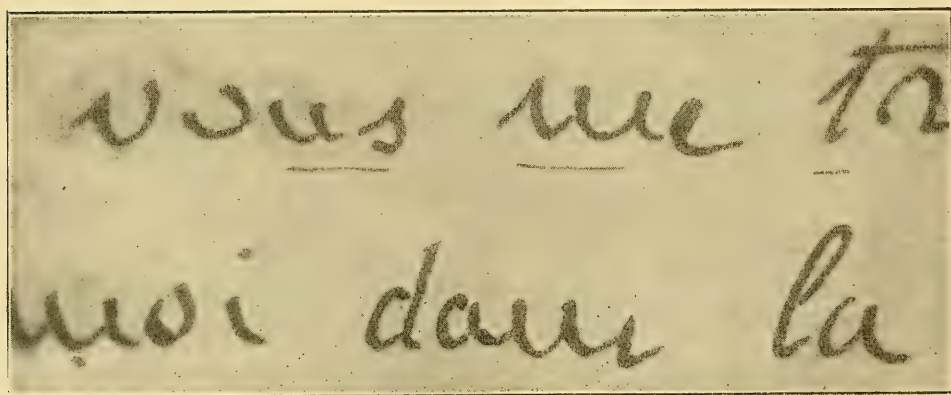 vous me
moi dans la